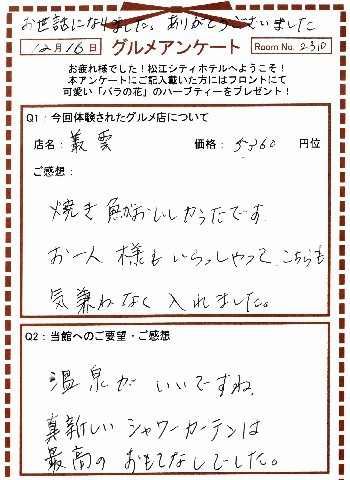 お世話になりました。ありがとうございました
12月16日 グルメアンケート Room No. 2310
お疲れ様でした!松江シティホテルへようこそ!
本アンケートにご記入戴いた方にはフロントにて
可愛い「バラの花」のハーブティーをプレゼント!
Q1:今回体験されたグルメ店について
店名: 叢雲 価格: 5,360 円位
ご感想:
焼き魚がおいしかったです。
お一人様もいらっしゃって、こちらも
気兼ねなく入れました。
Q2:当館へのご要望・ご感想
温泉がいいですね。
真新しいシャワーカーテンは
最高のおもてなしでした。